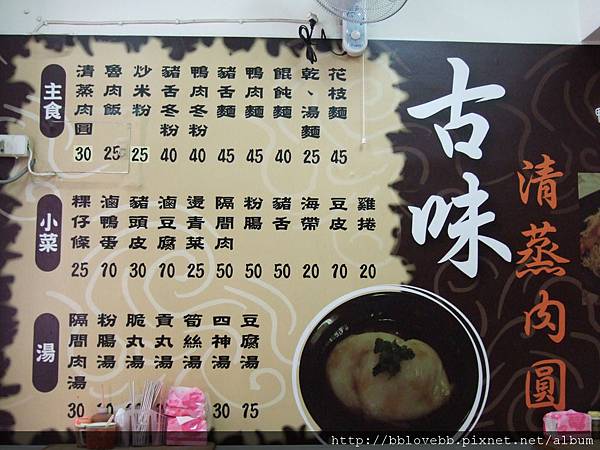 古味
清蒸肉圓
主食
清蒸肉圓 30
魯肉飯 25
炒米粉 25
豬舌冬粉 40
鴨肉冬粉 40
豬舌麵 45
鴨肉麵 45
餛飩麵 40
乾、湯麵 25
花枝麵 45
小菜
粿仔條 25
滷鴨蛋 10
豬頭皮 30
滷豆腐 10
燙青菜 25
隔間肉 50
粉腸 50
豬舌 50
海帶 20
豆皮 10
雞捲 20
湯
隔間肉湯 30
粉腸湯
脆丸湯
貢丸湯
筍絲湯
四神湯 30
豆腐湯 15
http://bblovebb.pixnet.net/album